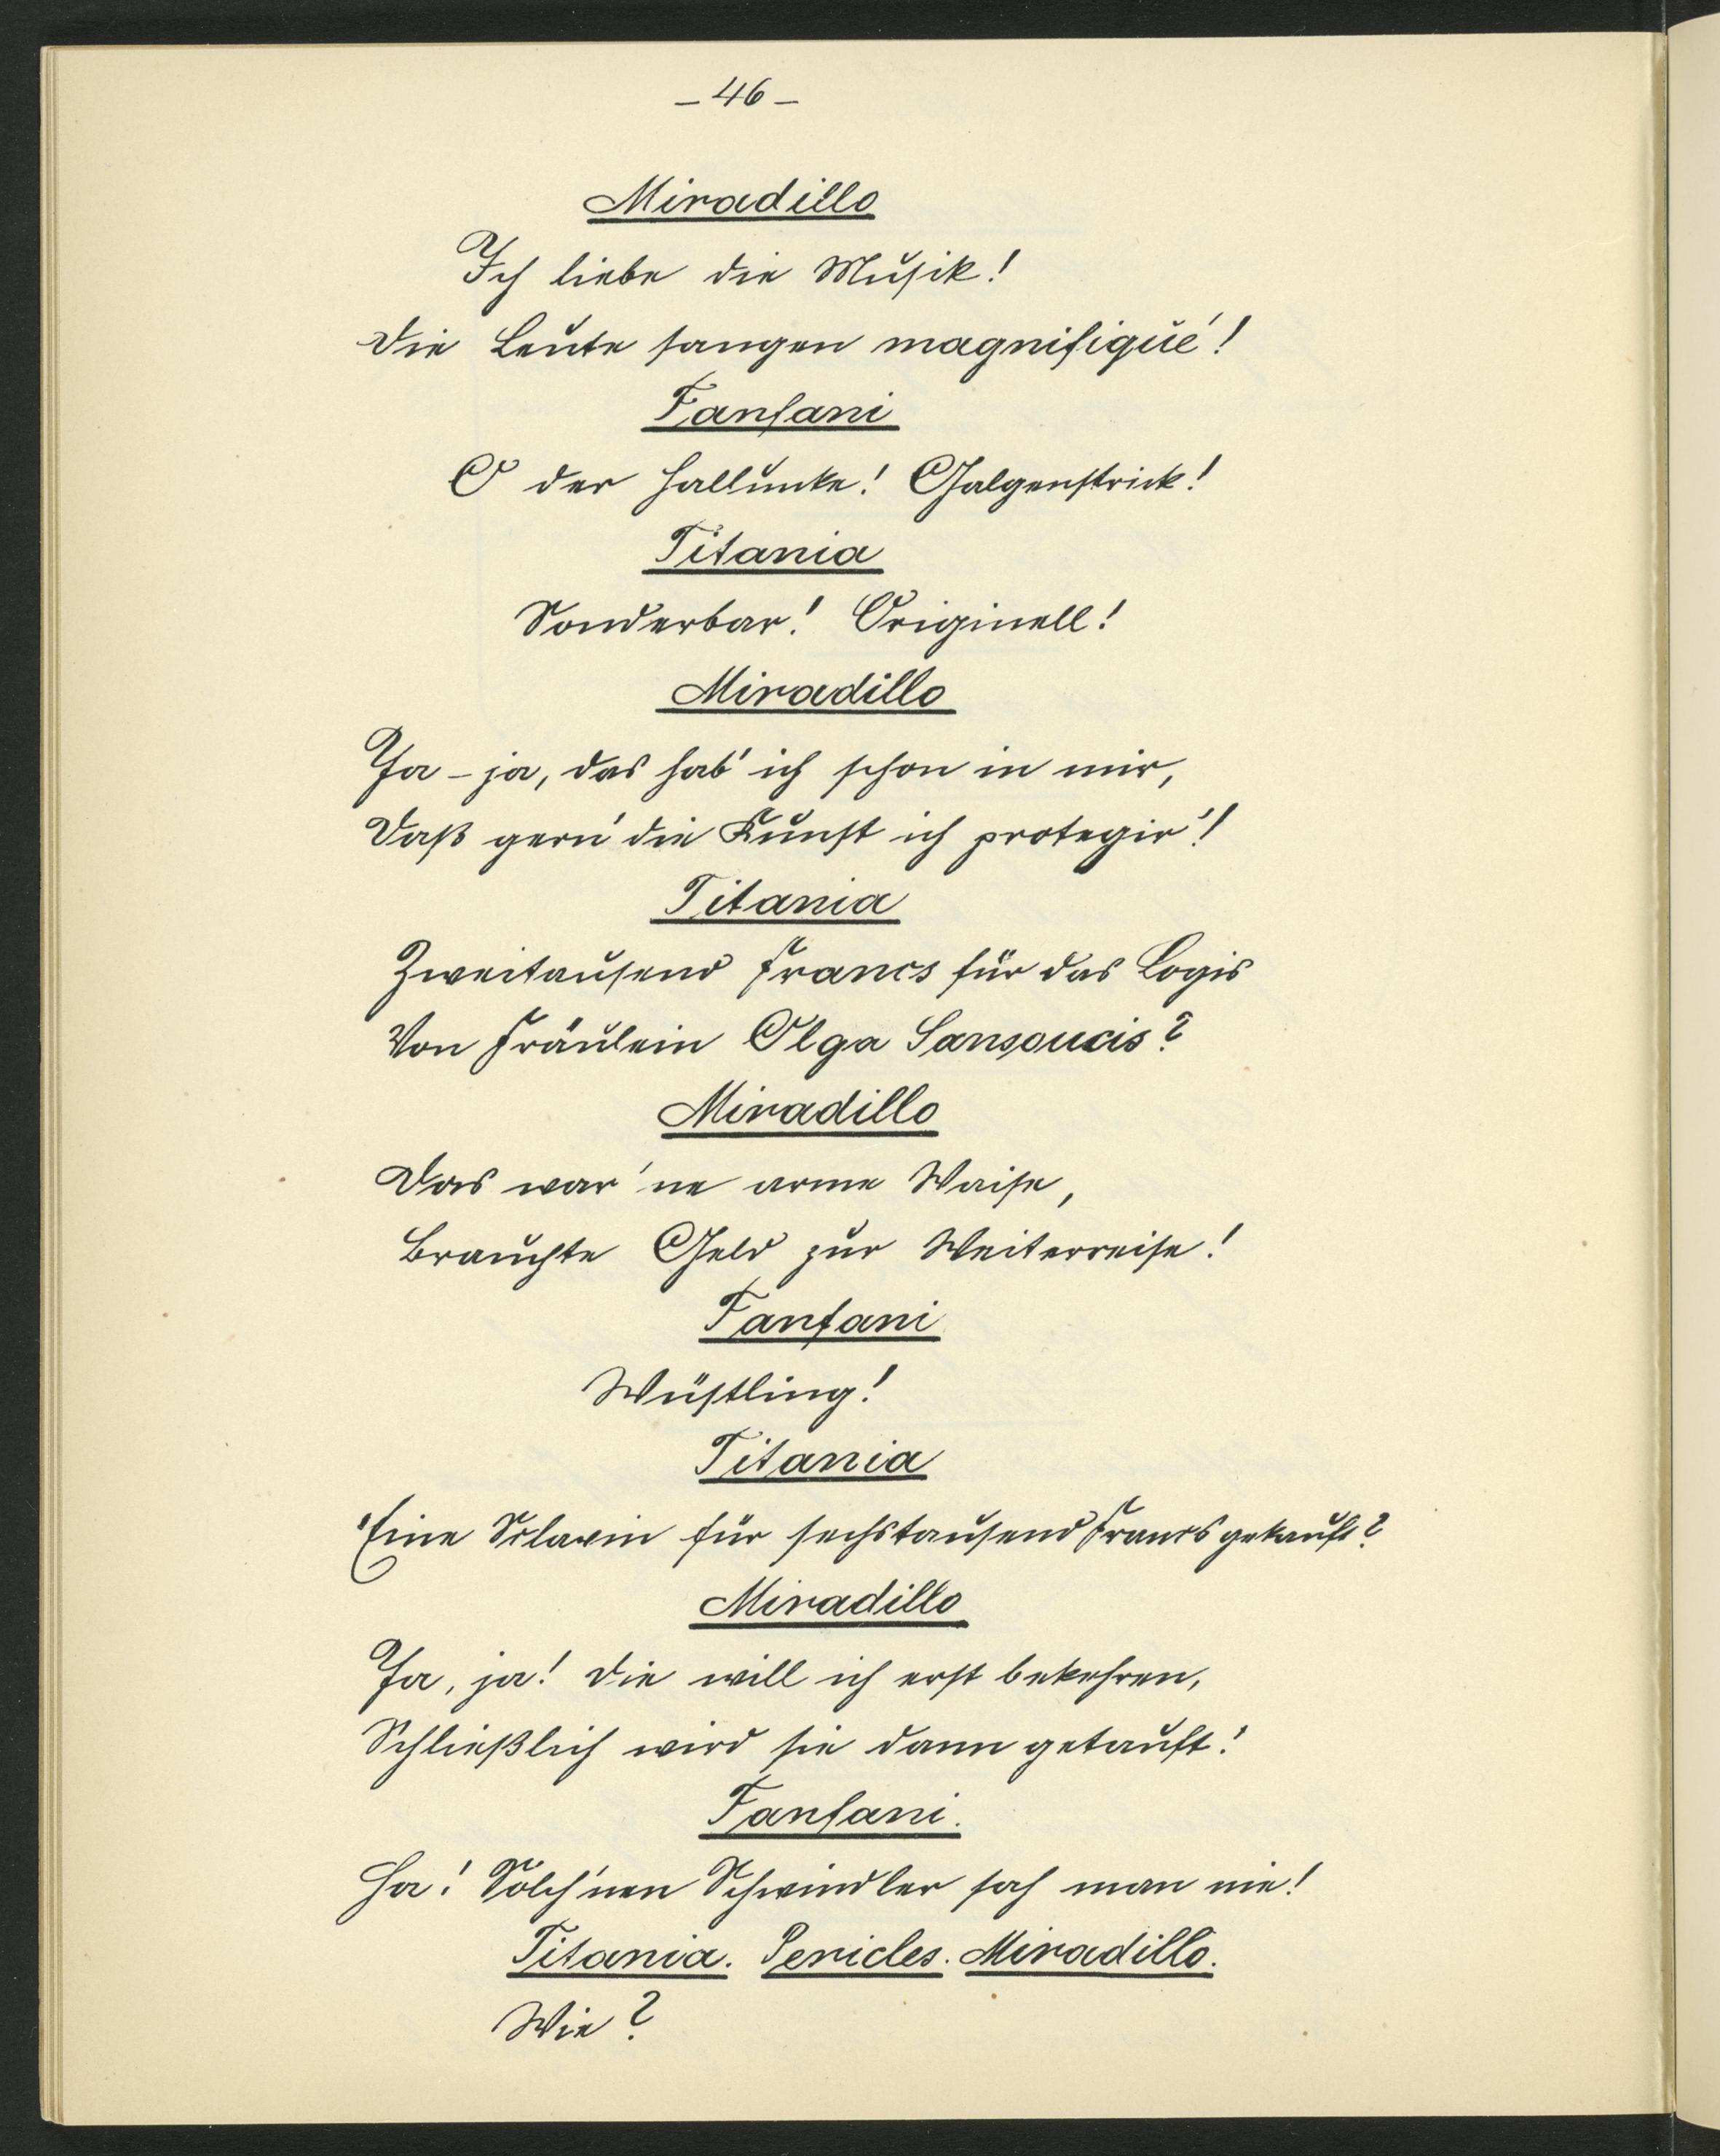 – 46 –
Miradillo
Ich liebe die Musik!
Die Leute sangen magnifiqué!
Fanfani
O der Hallunke! Galgenstrick!
Titania
Sonderbar! Originell!
Miradillo
Ja – ja, das hab' ich schon in mir,
Daß gern' die Kunst ich protegir'!
Titania
Zweitausend Francs für das Logis
Von Fräulein Olga Sansoucis?
Miradillo
Das war 'ne arme Waise,
Brauchte Geld zur Weiterreise!
Fanfani
Wüstling!
Titania
Eine Sclavin für sechstausend Francs gekauft?
Miradillo
Ja, ja! Die will ich erst bekehren,
Schließlich wird sie dann getauft!
Fanfani.
Ha! Solch'nen Schwindler sah man nie!
Titania. Pericles. Miradillo.
Wie?